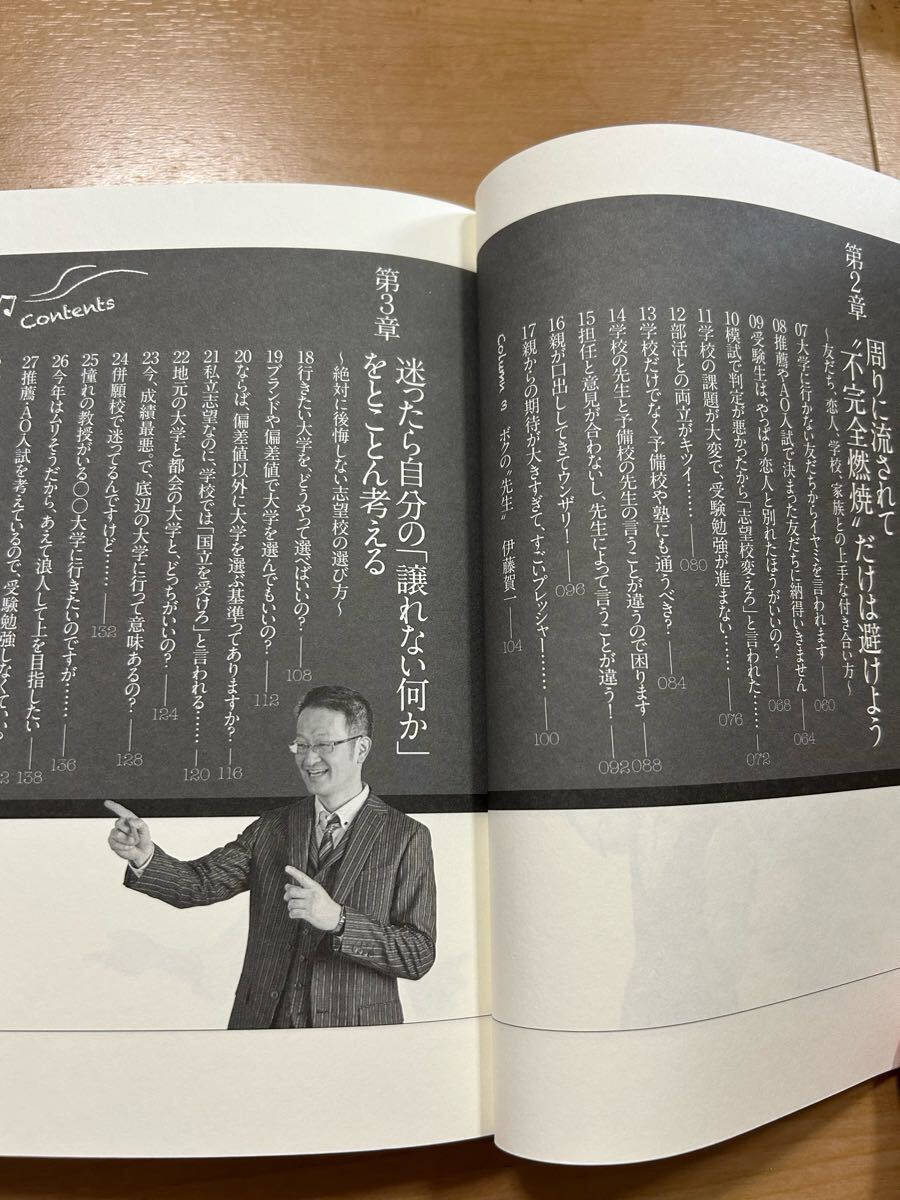 第2章
周りに流されて
“不完全燃焼”だけは避けよう
〜友だち、恋人、学校、家族との上手な付き合い方〜
07大学に行かない友だちからイヤミを言われます 060
08推薦やAO入試で決まった友だちに納得いきません 064
09受験生は、やっぱり恋人と別れたほうがいいの? 068
10模試で判定が悪かったから「志望校変えろ」と言われた…… 072
11学校の課題が大変で、受験勉強が進まない…… 076
12部活との両立がキツイ!…… 080
13学校だけでなく予備校や塾にも通うべき? 084
14学校の先生と予備校の先生の言うことが違うので困ります 088
15担任と意見が合わないし、先生によって言うことが違う! 092
16親が口出ししてきてウンザリ! 096
17親からの期待が大きすぎて、すごいプレッシャー…… 100
Column 3 ボクの“先生” 伊藤賀一 104
第3章
迷ったら自分の「譲れない何か」
をとことん考える
〜絶対に後悔しない志望校の選び方〜
18行きたい大学を、どうやって選べばいいの? 108
19ブランドや偏差値で大学を選んでもいいの? 112
20ならば、偏差値以外に大学を選ぶ基準ってありますか? 116
21私立志望なのに、学校では「国立を受けろ」と言われる…… 120
22地元の大学と都会の大学と、どっちがいいの? 124
23今、成績最悪。で、底辺の大学に行って意味あるの? 128
24併願校で迷ってるんですけど…… 132
25憧れの教授がいる〇〇大学に行きたいのですが…… 136
26今年はムリそうだから、あえて浪人して上を目指したい 138
27推薦・AO入試を考えているので、受験勉強しなくて、い
Contents